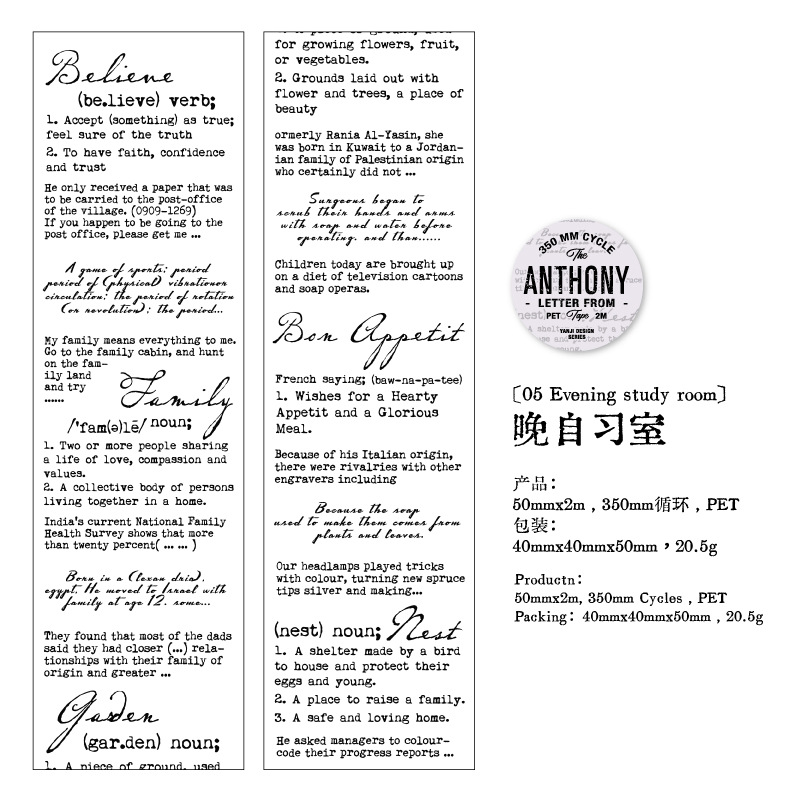 Believe
(be.lieve) verb;
1. Accept (something) as true;
feel sure of the truth
2. To have faith, confidence
and trust
He only received a paper that was
to be carried to the post-office
of the village. (0909-1269)
If you happen to be going to the
post office, please get me ...
A game of sports: period
period of (physical) vibrationor
circulation: the period of rotation
(or revolution): the period...
My family means everything to me.
Go to the family cabin, and hunt
on the fam-
ily land
and try
......
Family
/'fam(ə)lē/ noun;
1. Two or more people sharing
a life of love, compassion and
values.
2. A collective body of persons
living together in a home.
India's current National Family
Health Survey shows that more
than twenty percent( ... ... )
Born in a (Texan dria),
egypt, He moved to Israel with
family at age 12. some...
They found that most of the dads
said they had closer (...) rela-
tionships with their family of
origin and greater ...
Garden
(gar.den) noun;
1. A piece of ground, used
for growing flowers, fruit,
or vegetables.
2. Grounds laid out with
flower and trees, a place of
beauty
ormerly Rania Al-Yasin, she
was born in Kuwait to a Jordan-
ian family of Palestinian origin
who certainly did not ...
Surgeons began to
scrub their hands and arms
with soap and water before
operating. and than......
Children today are brought up
on a diet of television cartoons
and soap operas.
Bon Appetit
French saying; (baw-na-pa-tee)
1. Wishes for a Hearty
Appetit and a Glorious
Meal.
Because of his Italian origin,
there were rivalries with other
engravers including
Because the soap
used to make them comes from
plants and leaves.
Our headlamps played tricks
with colour, turning new spruce
tips silver and making...
(nest) noun; Nest
1. A shelter made by a bird
to house and protect their
eggs and young.
2. A place to raise a family.
3. A safe and loving home.
He asked managers to colour-
code their progress reports ...
350 MM CYCLE
The
ANTHONY
- LETTER FROM -
PET Tape 2M
YANJI DESIGN
SERIES
[05 Evening study room]
晚自习室
产品：
50mmx2m , 350mm循环 , PET
包装：
40mmx40mmx50mm , 20.5g
Productn:
50mmx2m, 350mm Cycles , PET
Packing: 40mmx40mmx50mm , 20.5g